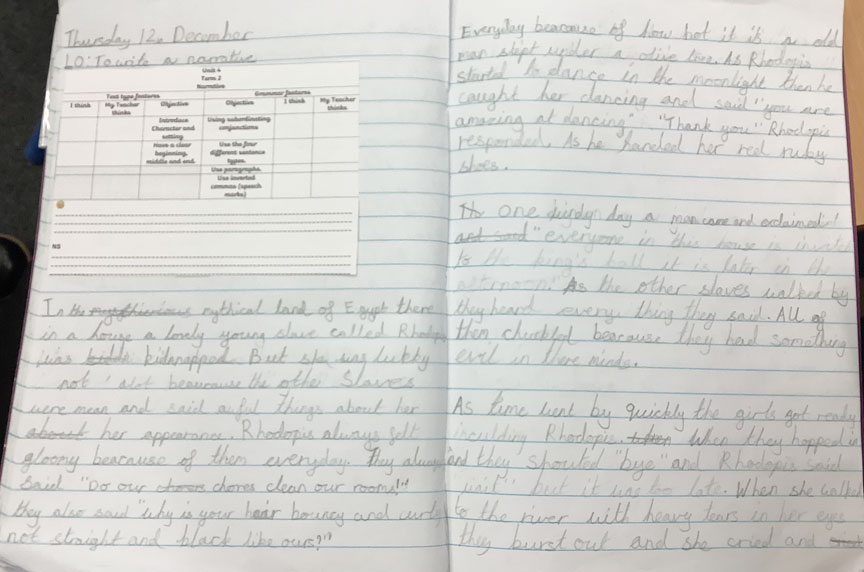 Thursday 12th December
LO: To write a narrative
Unit 4
Term 2
Narrative
Text type features
Grammar features
I think
My Teacher thinks
Objective
Objective
I think
My Teacher thinks
Introduce Character and setting
Using subordinating conjunctions
Have a clear beginning, middle and end.
Use the four different sentence types.
Use paragraphs.
Use inverted commas (speech marks)
NS
In the mythical land of Egypt there
in a house a lovely young slave called Rhodopis
was kidnapped. But she was lukky
not beaurause the other Slaves
were mean and said auful things about her
about her appearance. Rhodopis always felt
gloomy bearcause of them everyday. They always
said "Do our chores clean our rooms!"
they also said "why is your hair bouncy and curly
not straight and black like ours?"
Everyday bearcause of how hot it is a old
man slept under a olive tree. As Rhodopis
started to dance in the moonlight then he
caught her dancing and said "you are
amazing at dancing" "Thank you" Rhodopis
responded. As he handed her red ruby
shoes.
one day a man came and exclaimed
and said "everyone in this house is invited
to the king's ball it is later in the
afternoon." As the other slaves walked by
they heard every thing they said. All of
them chuckled bearcause they had something
evil in there minds.
As time went by quickly the girls got ready
inculding Rhodopis. When they hopped in
and they shouted "bye" and Rhodopis said
"wait" but it was to late. When she walked
to the river with heavy tears in her eyes
they burst out and she cried and